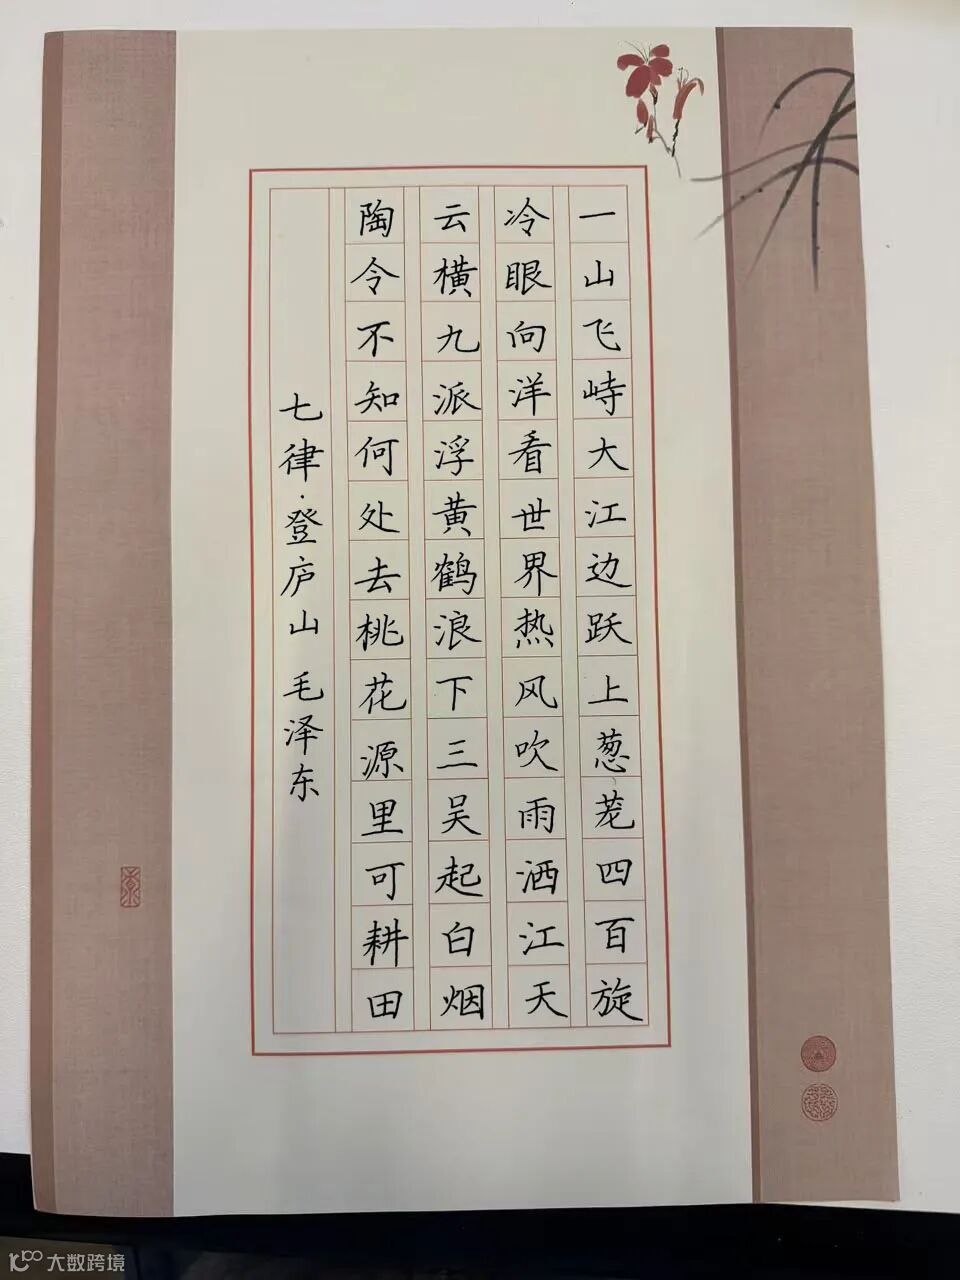 一山飞峙大江边跃上葱茏四百旋
冷眼向洋看世界热风吹雨洒江天
云横九派浮黄鹤浪下三吴起白烟
陶令不知何处去桃花源里可耕田
七律·登庐山 毛泽东
大数跨境